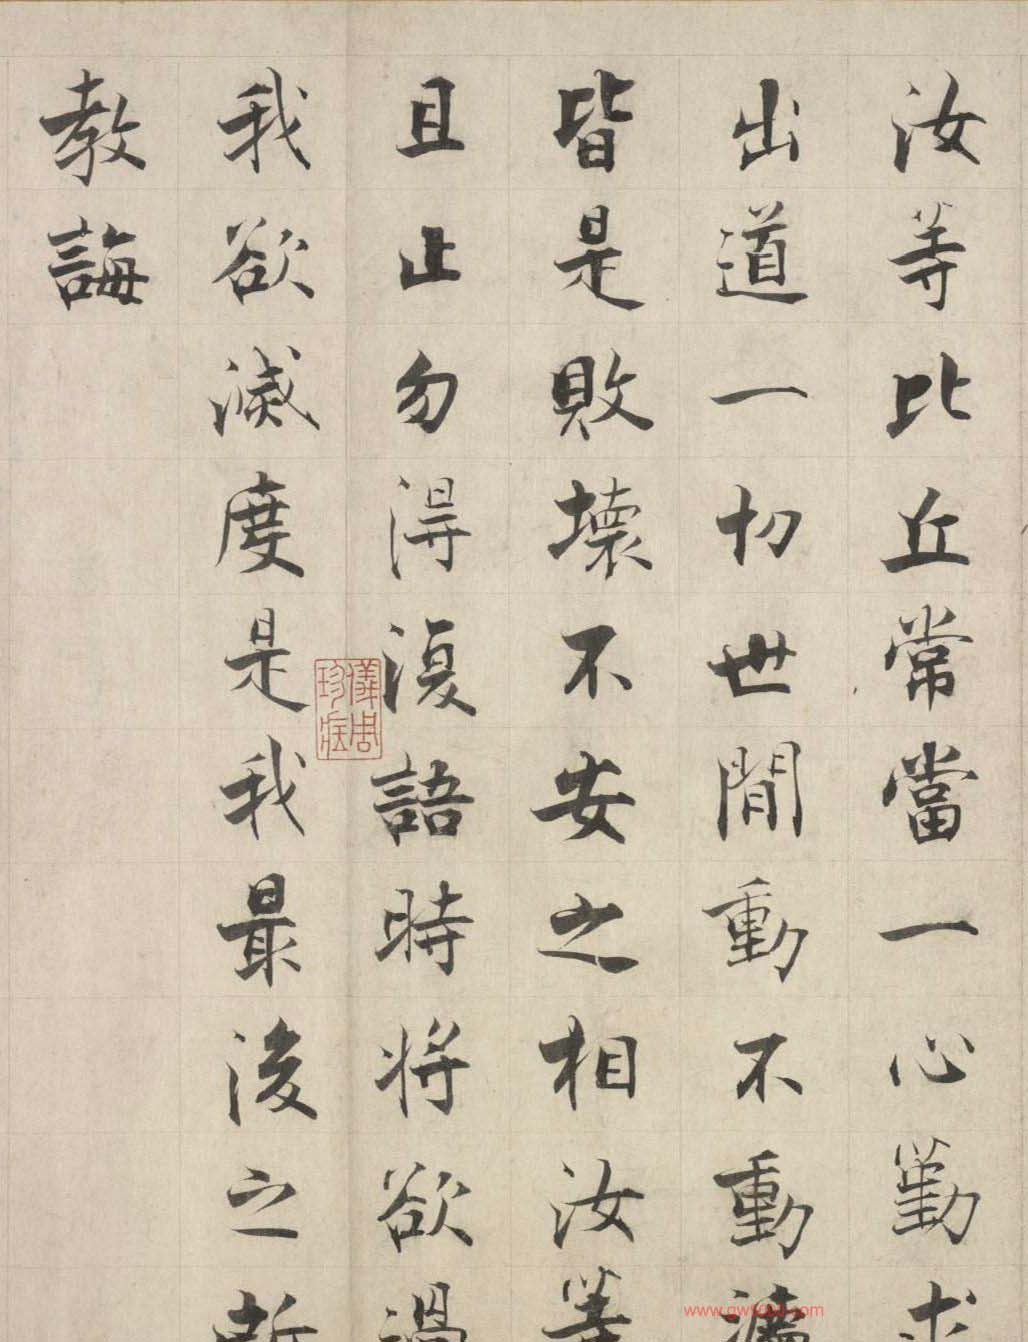 汝等比丘常當一心勤求
出道一切世間動不動法
皆是敗壞不安之相汝等
且止勿得復語時將欲過
我欲滅度是我最後之
教誨
儀周
珍藏